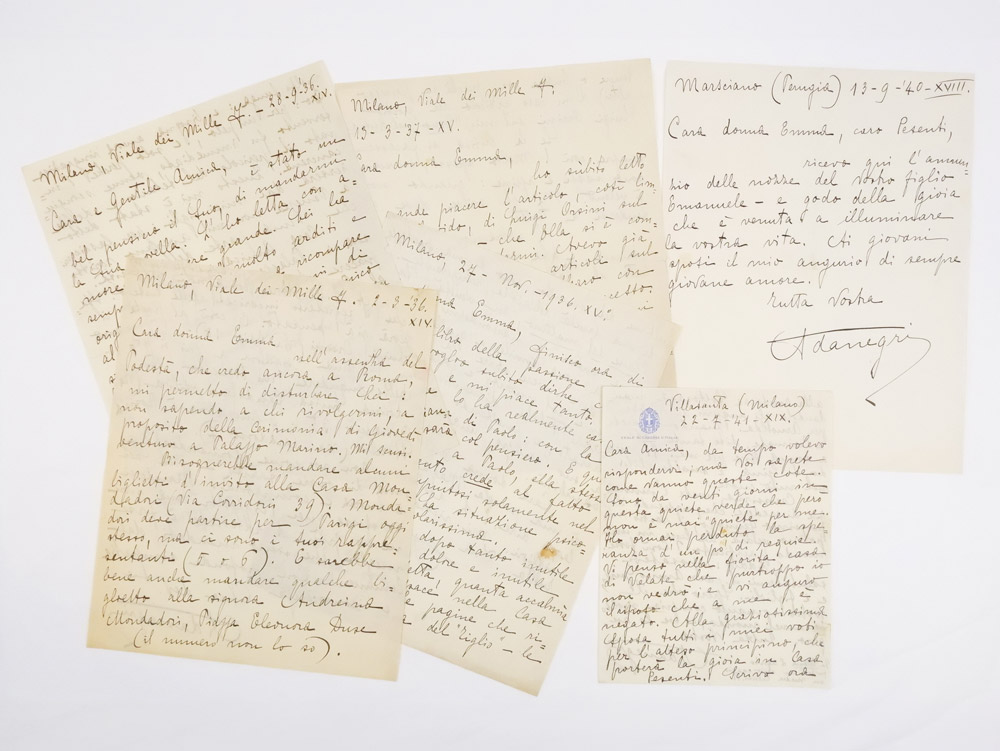 Milano, Viale dei Mille 7. - 28-9-'36.
XIV.
Cara e Gentile Amica, è stato un
bel pensiero il Suo, di mandarmi
la Sua novella: l'ho letta con a=
more grande. Lei
molto arditi e
ricompare
vi, di
Milano, Viale dei Mille 7.
13-3-'37-XV.
Cara donna Emma,
ho subito letto
grande piacere l'articolo, così lim=
lido, di Luigi Orsini sul
- che Ella si è com=
Avevo già
articoli sul
con
Milano, 27- Nov. -1936. XV.
Emma,
finisco ora di
libro della passione
voglio subito dirle
e mi piace tanto
lo ha realmente
di Paolo: con la
sarà col pensiero. E
a Paolo, ella stessa
crede al fatto
solamente nel
la situazione psico=
dopo tanto inutile
dolore e inutile
quanta
pace nella Casa
pagine che ri=
del "Giglio" - le
Marsciano (Perugia) 13-9-'40-XVIII.
Cara donna Emma, caro Pesenti,
ricevo qui l'annun=
zio delle nozze del vostro figlio
Emanuele - e godo della gioia
che è venuta a illuminare
la vostra vita. Ai giovani
sposi il mio augurio di sempre
giovane amore.
Tutta Vostra
Adanegri
Milano, Viale dei Mille 7. 2-3-'36.
XIV.
Cara donna Emma
nell'assenza del
Podestà, che vedo ancora a Roma,
mi permetto di disturbare Lei:
non sapendo a chi rivolgermi, a
proposito della cerimonia di Giovedì
venturo a Palazzo Marino. Mi scusi.
Bisognerebbe mandare alcuni
biglietti d'invito alla Casa Mon=
dadori (Via Corridoni 39). Monda=
dori deve partire per Parigi oggi
stesso, ma ci sono i suoi rappre=
sentanti (5 o 6). E sarebbe
bene anche mandare qualche bi=
glietto alla signora Andreina
Mondadori, Piazza Eleonora Duse
(il numero non lo so).
Villasanta (Milano)
22-7-'41-XIX.
Cara Amica, da tempo volevo
rispondervi; ma Voi sapete
come vanno queste cose.
Sono da venti giorni in
questa quiete verde che però
non è mai "quiete" per me.
Ho ormai perduto la spe=
ranza d'un po' di requie.
Vi penso nella fiorita casa
di Valate che purtroppo io
non vedrò; e vi auguro
il riposo che a me è
negato. Alla graziosissima
sposa tutti i miei voti
per l'atteso principino, che
porterà la gioia in Casa
Pesenti. Scrivo ora